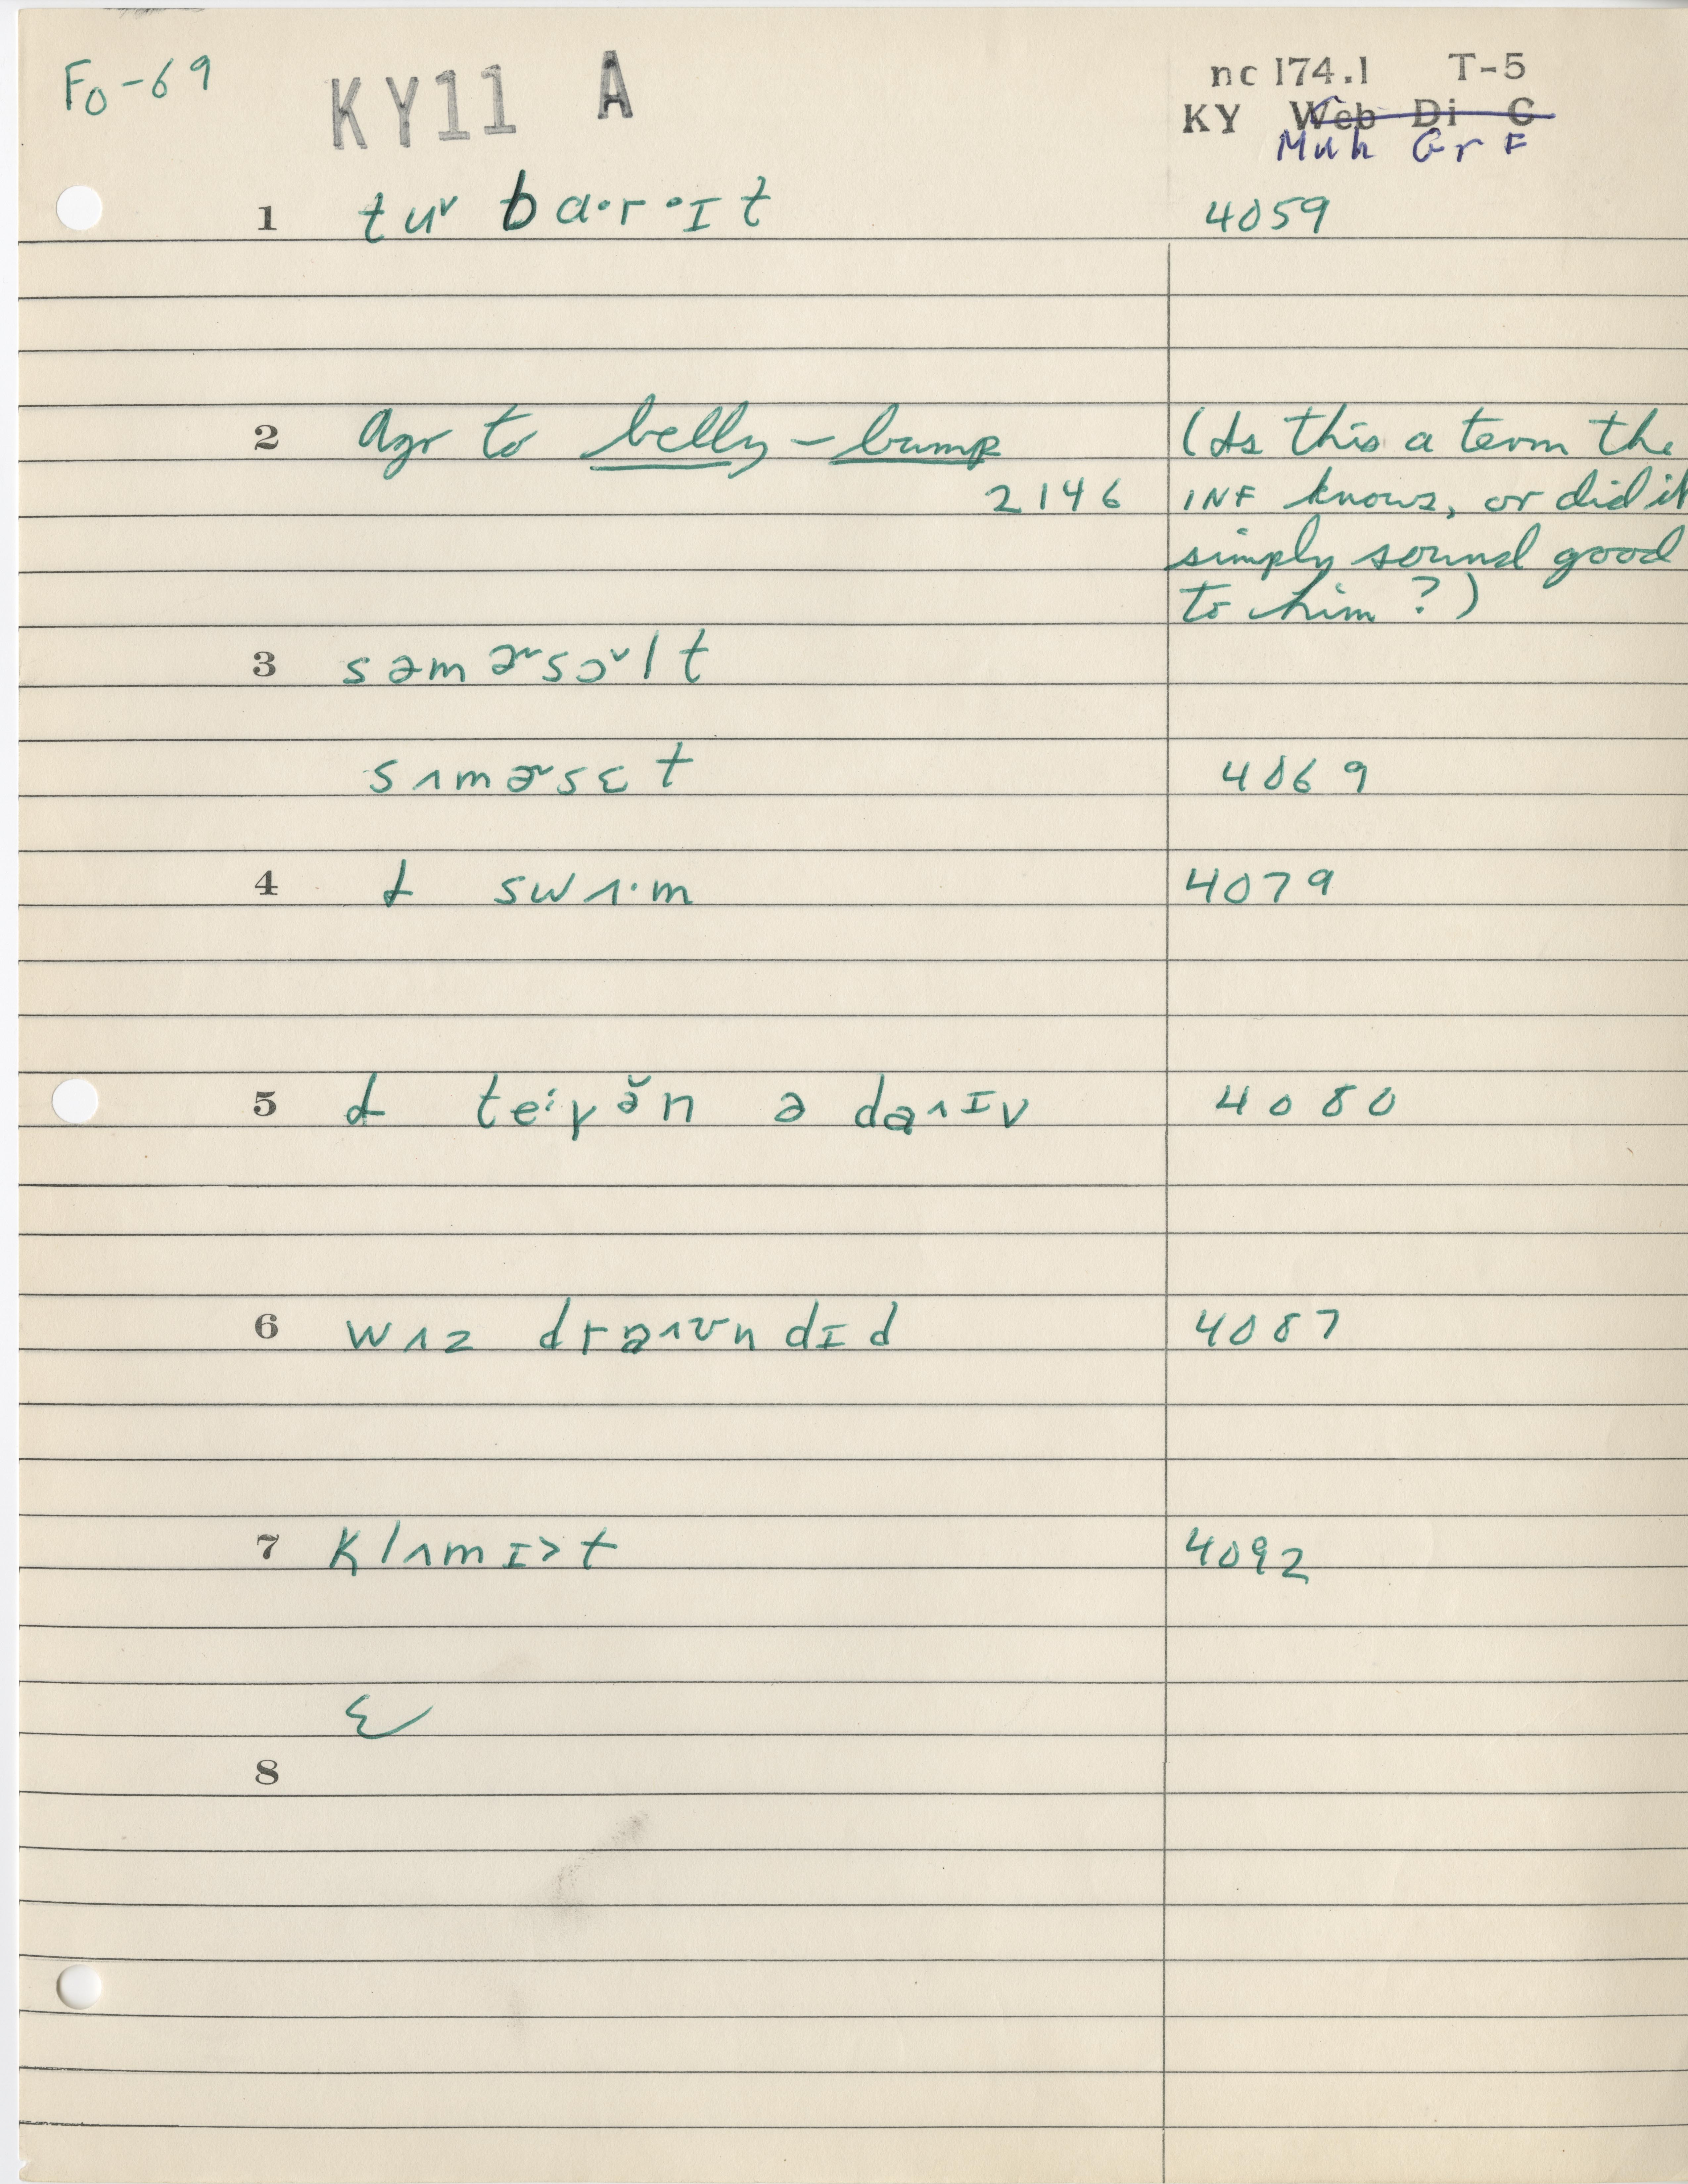 Fo-69
KY11 A
nc 174.1 T-5
KY Web Di C
Muh Gr F
1 tuᵛ ba·r·ɪt 4059
2 agr to belly-bump (Is this a term the
2146 INF knows, or did it
simply sound good
to him ?)
3 səmɚsɔᵛlt
sʌmɚsɛt 4069
4 swʌ·m 4079
5 ə 4080
6 wʌz 4087
7 klʌmɪ>t 4092
Ɛ
8